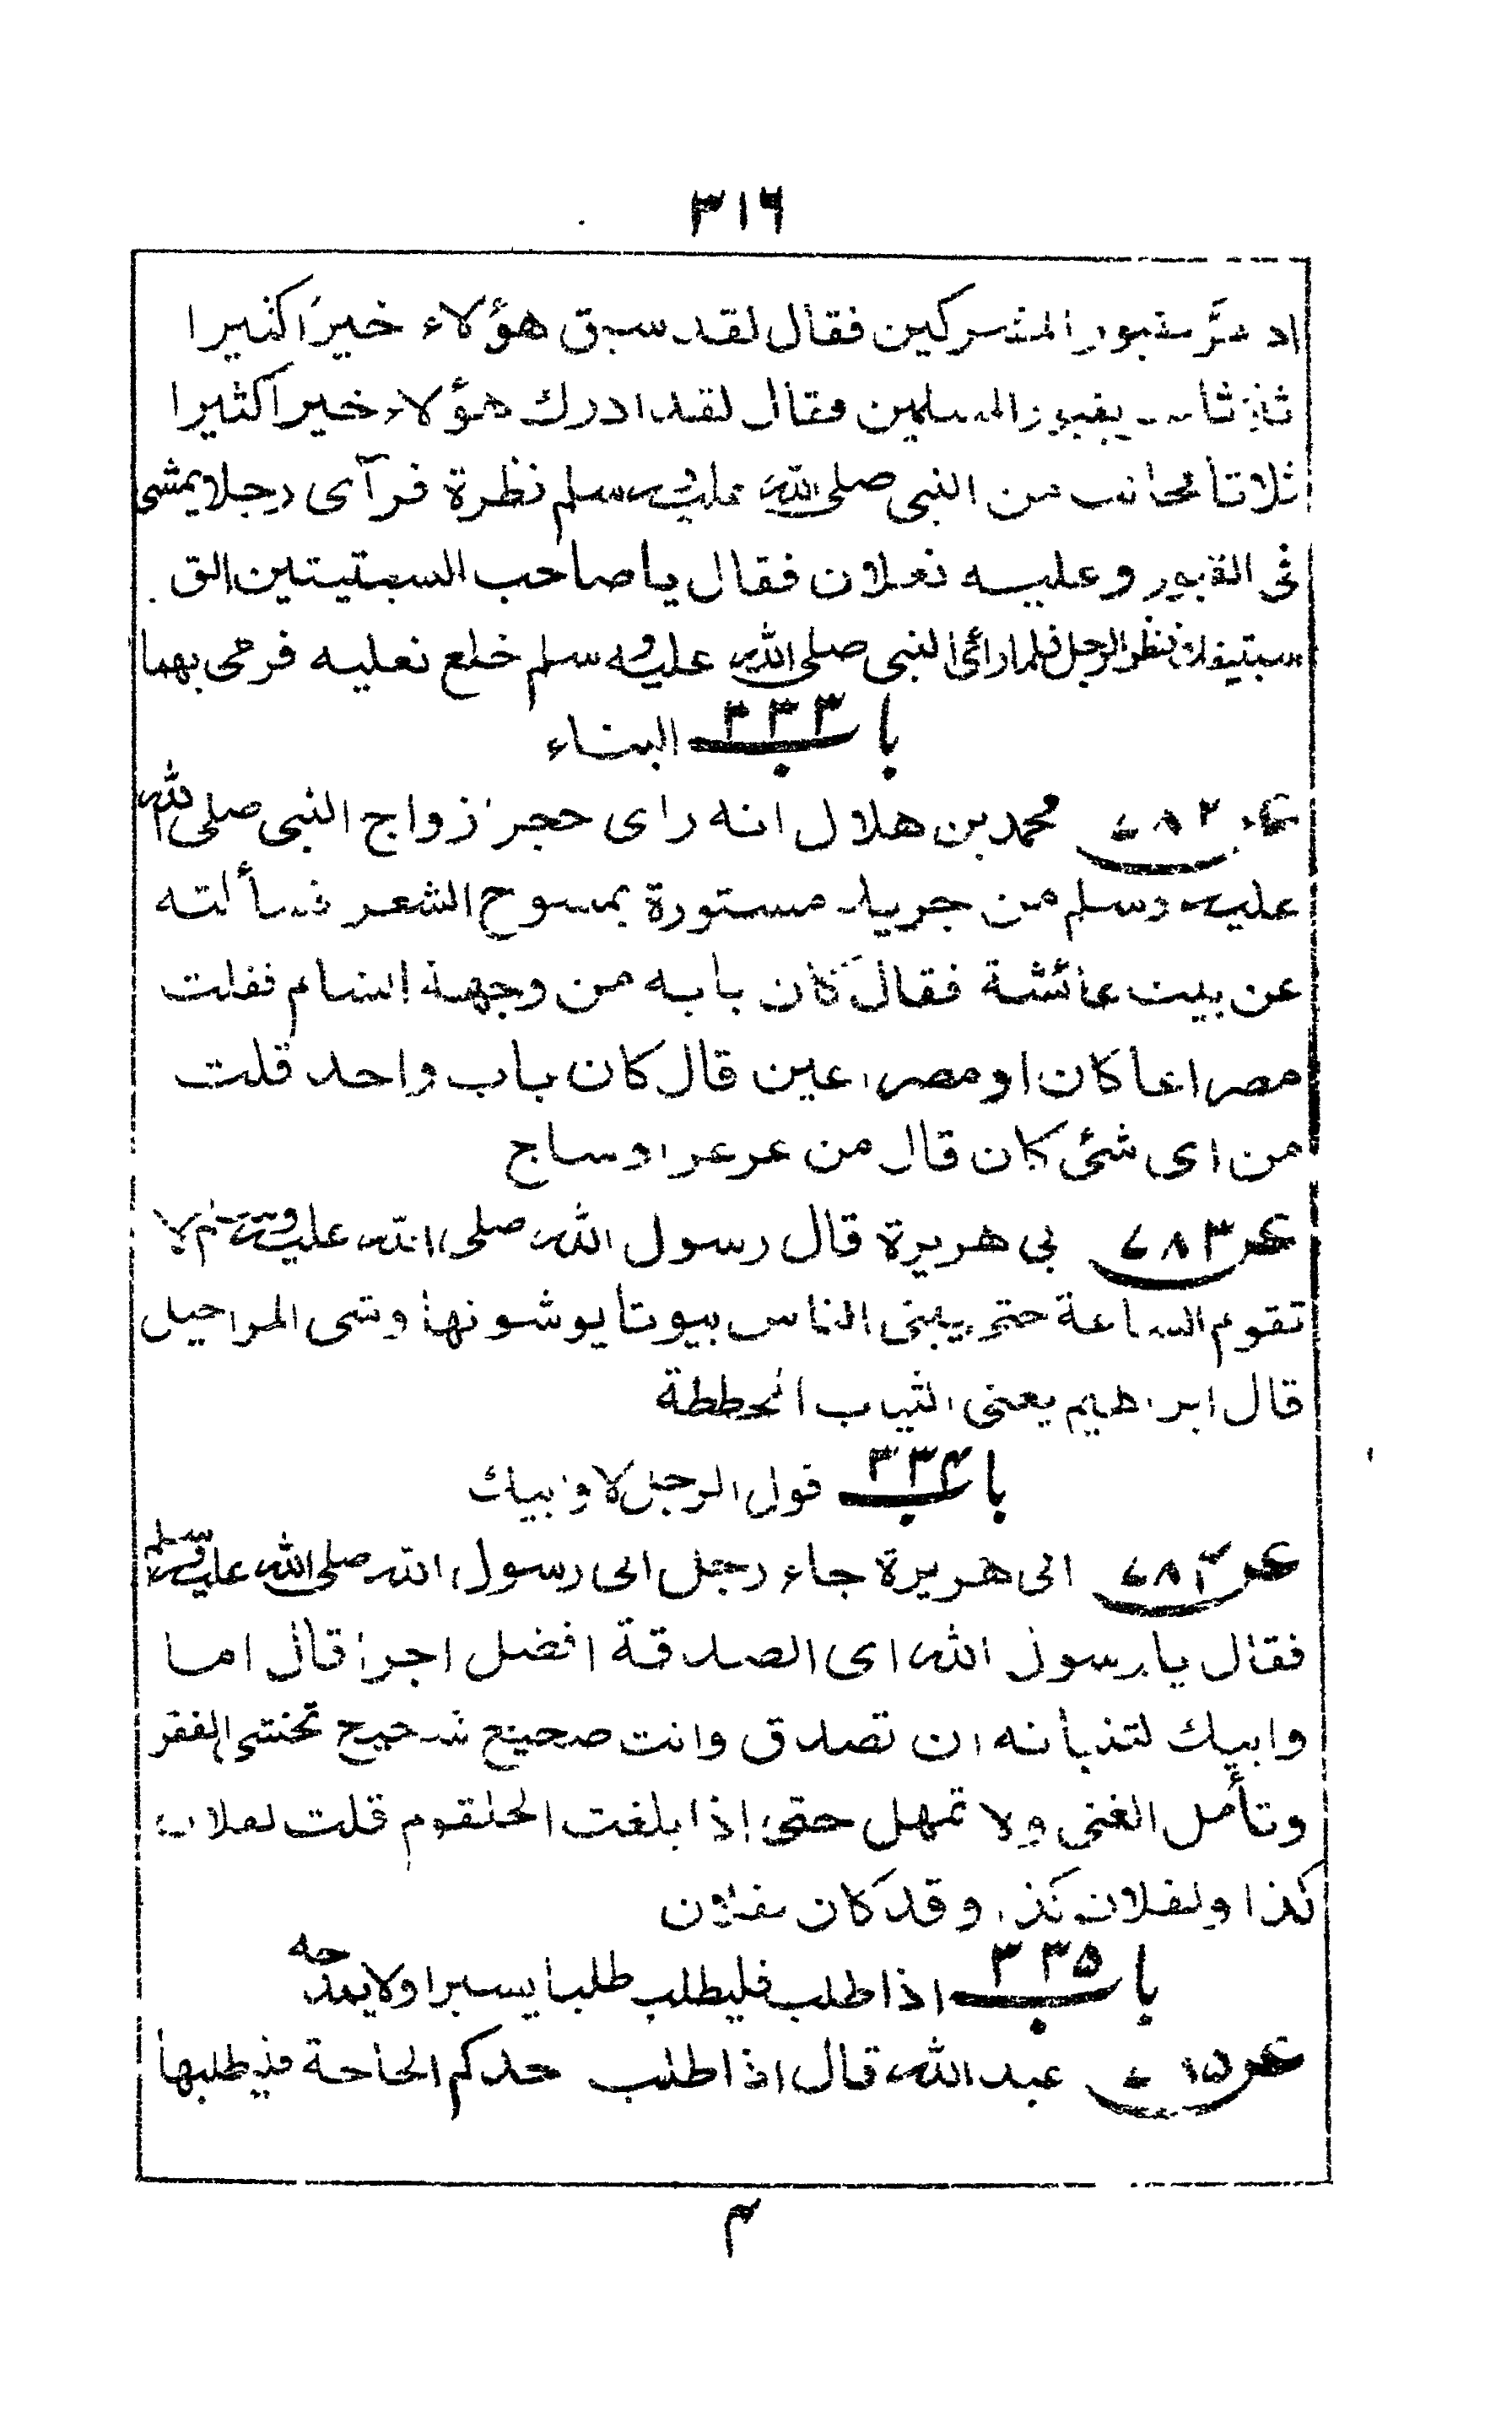 ٣١٦
اذ مر بقبور المشركين فقال لقد سبق هؤلاء خيرا كثيرا
ثلاثا بقبور المسلمين فقال لقد ادرك هؤلاء خيرا كثيرا
ثلاثا فحانت من النبى صلى الله عليه وسلم نظرة فرآى رجلا يمشى
فى القبور وعليه نعلان فقال يا صاحب السبتيتين الق
سبتيتيك فنظر الرجل فلما رأى النبى صلى الله عليه وسلم خلع نعليه فرمى بهما
باب ٣٣٣ البناء
عن ٧٨٢ محمد بن هلال انه راى حجر ازواج النبى صلى الله
عليه وسلم من جريد مستورة بمسوح الشعر فسألته
عن بيت عائشة فقال كان بابه من وجهة الشام فقلت
مصراعا كان او مصراعين قال كان باب واحد قلت
من اى شئ كان قال من عرعر او ساج
عن ٧٨٣ ابى هريرة قال رسول الله صلى الله عليه وسلم لا
تقوم الساعة حتى يبنى الناس بيوتا يوشونها وشى المراحيل
قال ابراهيم يعنى الثياب المخططة
باب ٣٣٤ قول الرجل لا وابيك
عن ٧٨٤ ابى هريرة جاء رجل الى رسول الله صلى الله عليه وسلم
فقال يا رسول الله اى الصدقة افضل اجرا قال اما
وابيك لتنبأنه ان تصدق وانت صحيح شحيح تخشى الفقر
وتأمل الغنى ولا تمهل حتى إذا بلغت الحلقوم قلت لفلان
كذا ولفلان كذا وقد كان لفلان
باب ٣٣٥ اذا طلب فليطلب طلبا يسيرا ولا يمدحه
عن عبد الله قال اذا طلب احدكم الحاجة فليطلبها
م